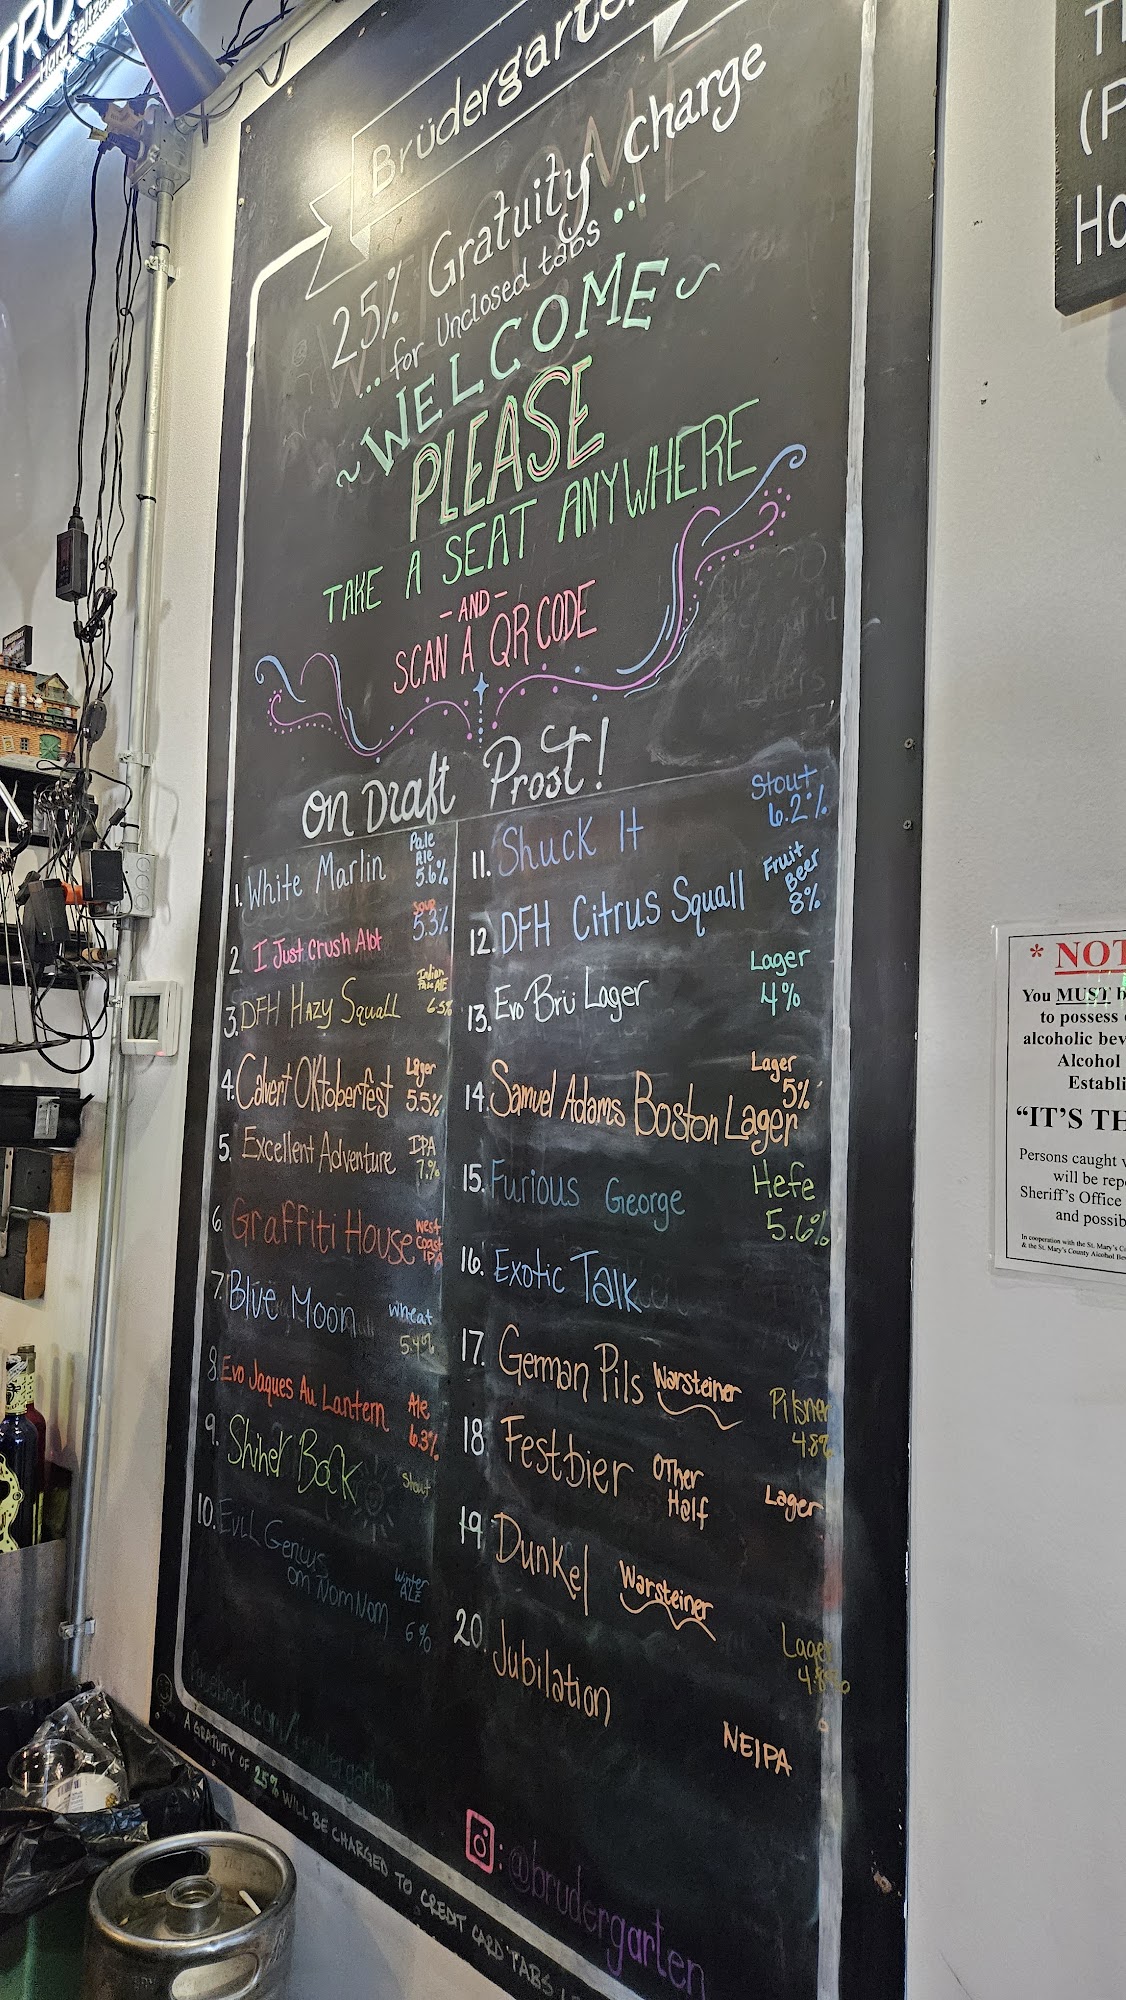 Hard Seltzer
Brüdergarten
25% Gratuity charge
.. for Unclosed tabs ...
~WELCOME~
PLEASE
TAKE A SEAT ANYWHERE
-AND-
SCAN A QR CODE
On Draft Prost!
1. White Marlin Pale Ale 5.6%
2. I Just Crush Alot Sour 5.3%
3. DFH Hazy Squall Indian Pale Ale 6.5%
4. Calvert OKtoberfest Lager 5.5%
5. Excellent Adventure IPA 7.%
6. Graffiti House West Coast IPA
7. Blue Moon Wheat 5.4%
8. Evo Jaques Au Lantern Ale 6.3%
9. Shiner Bock Stout
10. Evil Genius
om Nom Nom Winter ALE 6%
11. Shuck It Stout 6.2%
12. DFH Citrus Squall Fruit Beer 8%
13. Evo Brü Lager Lager 4%
14. Samuel Adams Boston Lager Lager 5%
15. Furious George Hefe 5.6%
16. Exotic Talk
17. German Pils Warsteiner Pilsner 4.8%
18 Festbier OTher Half Lager
19 Dunkel Warsteiner Lager 4.8%
20. Jubilation NEIPA
facebook.com/brudergarten
: @brudergarten
A GRATUITY OF 25% WILL BE CHARGED TO CREDIT CARD TABS
(P
Ho
* NOT
You MUST b
to possess
alcoholic bev
Alcohol
Establi
"IT'S TH
Persons caught
will be repo
Sheriff's Office
and possib
In cooperation with the St. Mary's C
& the St. Mary's County Alcohol Bev